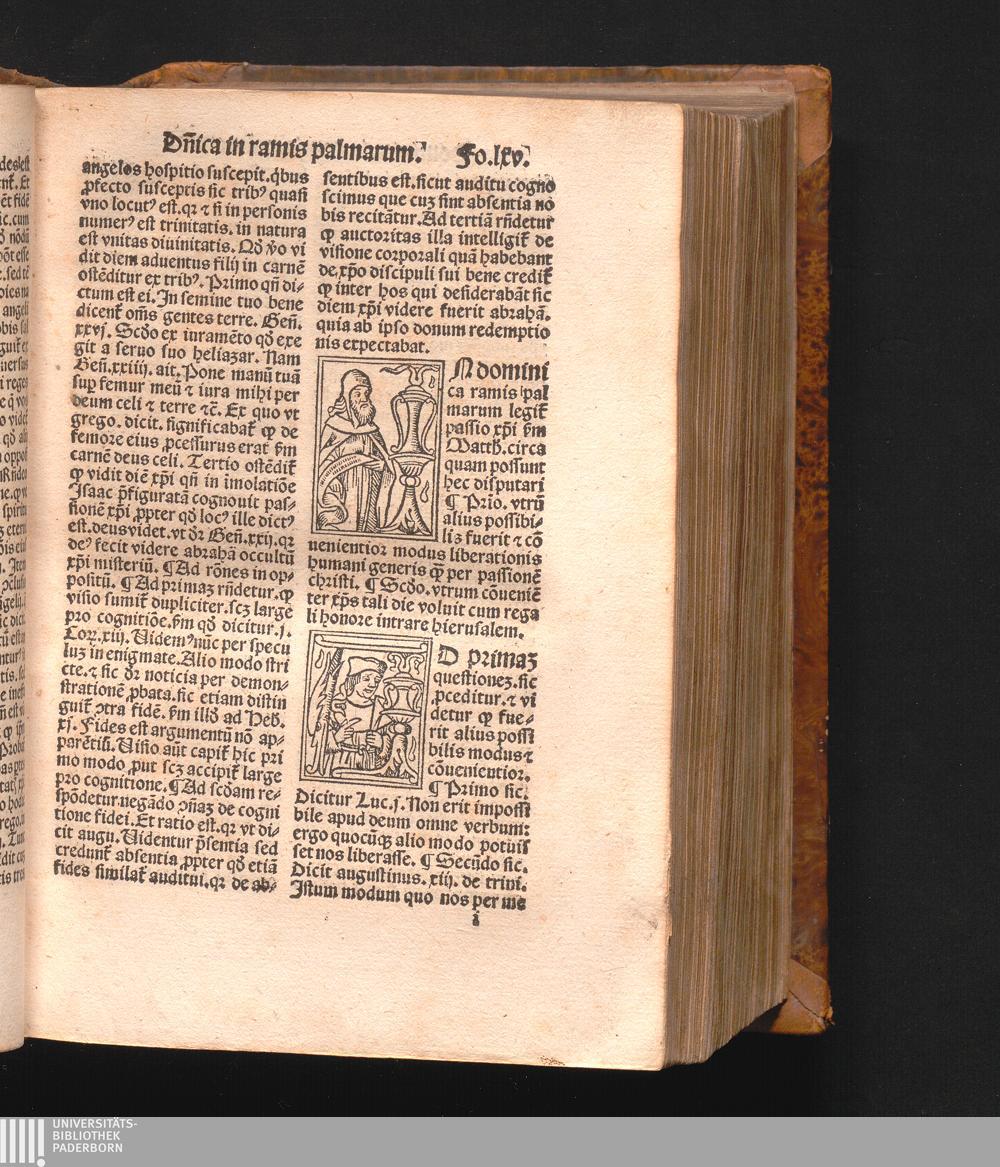 Dñica in ramis palmarum. Fo.lxv.
angelos hospitio suscepit. q̇bus
ꝓfecto susceptis sic tribꝰ quasi
vno locutꝰ est. qꝛ ⁊ si in personis
numerꝰ est trinitatis. in natura
est vnitas diuinitatis. Qđ ꝟo vi
dit diem aduentus filij in carnē
ostēditur ex tribꝰ. Primo qñ di⸗
ctum est ei. In semine tuo bene
dicent᷑ om̄s gentes terre. Geñ.
xxvj. Scđo ex iuramēto qđ exe
git a seruo suo heliazar. Nam
Geñ.xxiiij. ait. Pone manū tuā
suꝑ femur meū ⁊ iura mihi per
deum celi ⁊ terre ⁊c̄. Ex quo vt
grego. dicit. significabat᷑ ꝙ de
femore eius ꝓcessurus erat ẜm
carnē deus celi. Tertio ostēdit᷑
ꝙ vidit diē xp̄i qñ in imolatiōe
Isaac p̄figuratā cognouit pas⸗
sionē xp̄i ꝓpter qđ locꝰ ille dictꝰ
est. deus videt. vt dr̄ Geñ.xxij. qꝛ
deꝰ fecit videre abrahā occultū
xp̄i misteriū. ¶ Ad rōnes in op⸗
positū. ¶ Ad primaꝫ rñdetur. ꝙ
visio sumit᷑ dupliciter. scꝫ large
pro cognitiōe. ẜm qđ dicitur. j.
Corr. xiij. Uidemꝰ nūc per specu
luꝫ in enigmate. Alio modo stri
cte. ⁊ sic dr̄ noticia per demon⸗
strationē ꝓbata. sic etiam distin
guit᷑ ꝯtra fidē. ẜm illđ ad Heb̄.
xj. Fides est argumentū nō ap⸗
parētiū. Uisio aūt capit᷑ hic pri
mo modo ꝓut scꝫ accipit᷑ large
pro cognitione. ¶ Ad scđam re⸗
spōdetur. negādo ꝯñaꝫ de cogni
tione fidei. Et ratio est. qꝛ vt di⸗
cit augu. Uidentur p̄sentia sed
credunt᷑ absentia ꝓpter qđ etiā
fides similat᷑ auditui. qꝛ de ab⸗
sentibus est. sicut auditu cogno
scimus que cuꝫ sint absentia no
bis recitātur. Ad tertiā rñdetur
ꝙ auctoritas illa intelligit᷑ de
visione corporali quā habebant
de xp̄o discipuli sui bene credit᷑
ꝙ inter hos qui desiderabāt sic
diem xp̄i videre fuerit abrahā.
quia ab ipso donum redemptio
nis expectabat.
N domini
ca ramis pal
marum legit᷑
passio xp̄i ẜm
Matth̄. circa
quam possunt
hec disputari
¶ Prio. vtrū
alius possibi⸗
lis fuerit ⁊ cō
uenientior modus liberationis
humani generis q̄ꝫ per passionē
christi. ¶ Scđo. vtrum cōueniē
ter xp̄s tali die voluit cum rega
li honore intrare hierusalem.
D primaꝫ
questioneꝫ. sic
ꝓceditur. ⁊ vi
detur ꝙ fue⸗
rit alius possi
bilis modus ⁊
cōuenientior.
¶ Primo sic.
Dicitur Luc. j. Non erit impossi
bile apud deum omne verbum:
ergo quocūqꝫ alio modo potuis
set nos liberasse. ¶ Secūdo sic.
Dicit augustinus. xiij. de trini.
Istum modum quo nos per me
i
UNIVERSITÄTS-
BIBLIOTHEK
PADERBORN